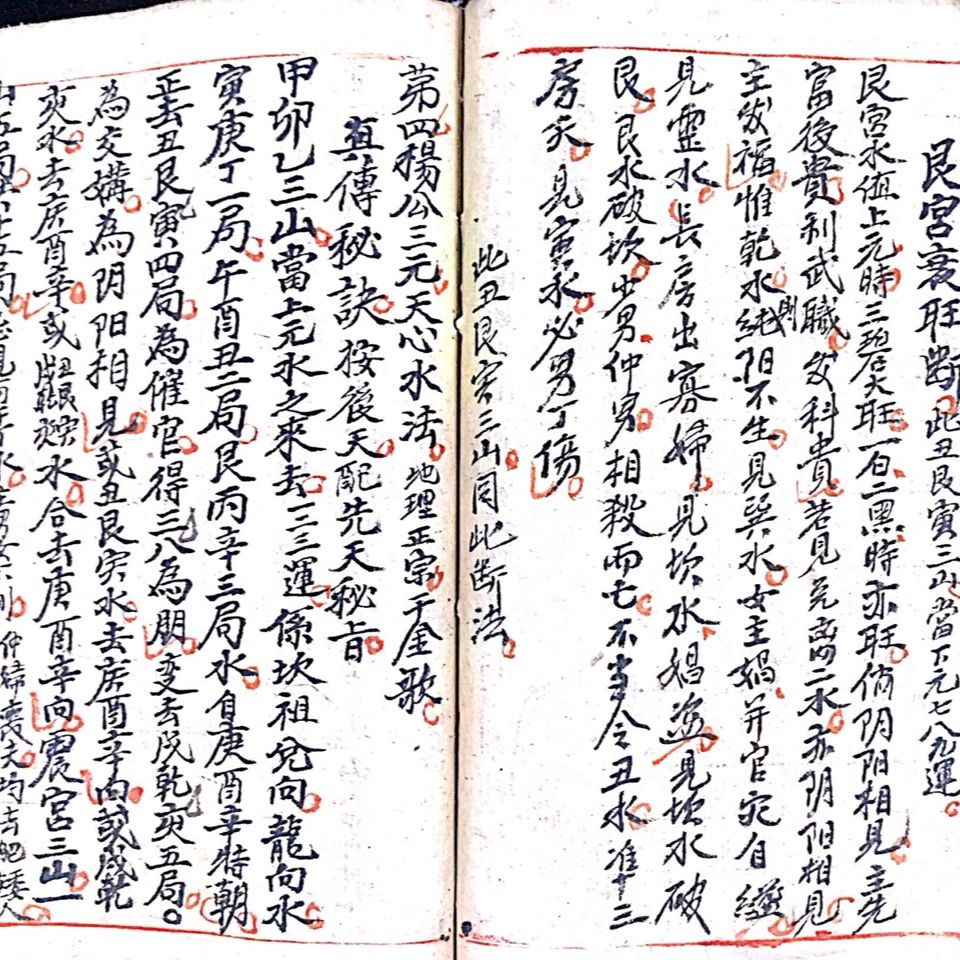 艮宮衰旺断 此丑艮寅三山當下元七八九運
艮宮水值上元時三碧大旺一白二黑時亦旺俏阴阳相見主先
富後貴利武職发科貴若見兑离二水亦阴阳相見
主发福惟乾水則純阳不生見巽水女主娼并官灾自縊
見靈水長房出寡婦見坎水娼盗見坎水破
艮艮水破坎少男仲男相殺而亡不當令丑水准十三
房夭見寅水必男丁傷
此丑艮寅三山同此断法
第四楊公三元天心水法 地理正宗千金歌
真傳秘訣按後天配先天秘旨
甲卯乙三山當上元水之來去一二三運係坎祖兌向龍向水
寅庚丁一局午酉丑二局艮丙辛三局水自庚酉辛特朝
正去丑艮寅四局為催官得三八為朋变去戌乾亥五局
為交媾為阴阳相見或丑艮寅水去庚酉辛向或戌乾
亥水去庚酉辛或丑艮寅戌乾亥水合去庚酉辛向震宮三山一